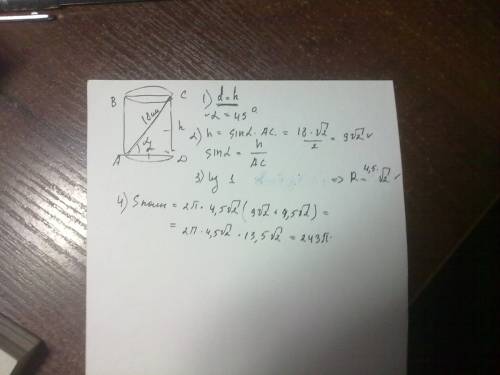 B C
18 см
h
A α D
1) d = h
∠α = 45°
2) h = sin α · AC = 18 · √2 / 2 = 9√2
sin α = h / AC
3) из 1 => R = 4,5 √2
4) Sполн = 2π · 4,5√2 (9√2 + 4,5√2) =
= 2π · 4,5√2 · 13,5√2 = 243π.